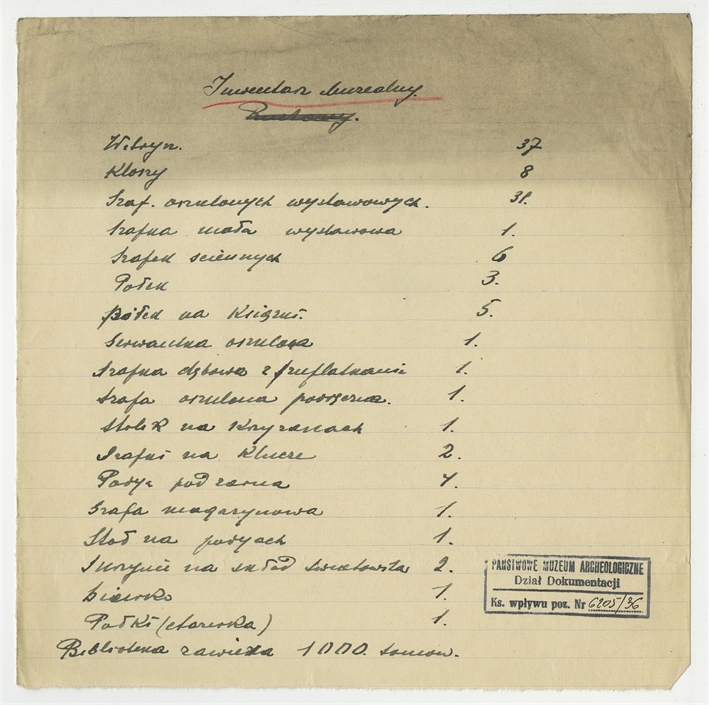 Inwentarz Muzealny
Witryn. 37
Kloszy 8
Szaf. oszklonych wystawowych. 31.
Szafka mała wystawowa 1.
Szafek sciennych 6
Półek 3.
półek na Książki. 5.
Serwantka oszklona 1.
Szafka dębowa z szufladkami 1.
Szafa oszklona podręczna. 1.
Stolik na Krzyżanach 1.
Szafki na Klucze 2.
4.
Szafa magazynowa 1.
Stół na 1.
Skrzynie na skład Swiatowita 2.
biurko 1.
Półki 1.
Biblioteka zawiera 1000. tomow.
PAŃSTWOWE MUZEUM ARCHEOLOGICZNE
Dział Dokumentacji
Ks. wpływu poz. Nr 6205/36